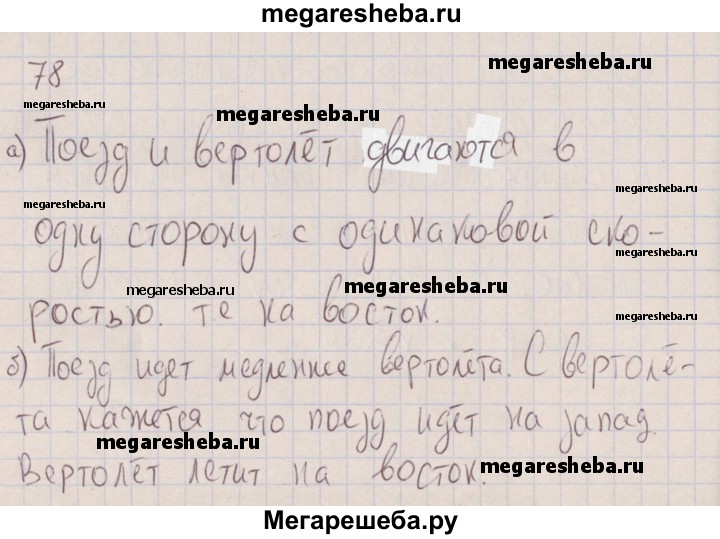 megaresheba.ru
78
megaresheba.ru
megaresheba.ru
megaresheba.ru
а) Поезд и вертолёт двигаются в
megaresheba.ru
megaresheba.ru
одну сторону с одинаковой ско-
megaresheba.ru
megaresheba.ru
megaresheba.ru
ростью. те на восток.
megaresheba.ru
б) Поезд идет медленнее вертолёта. С вертолё-
та кажется что поезд идёт на запад.
megaresheba.ru
Вертолёт летит на восток.
megaresheba.ru
Мегарешеба.ру